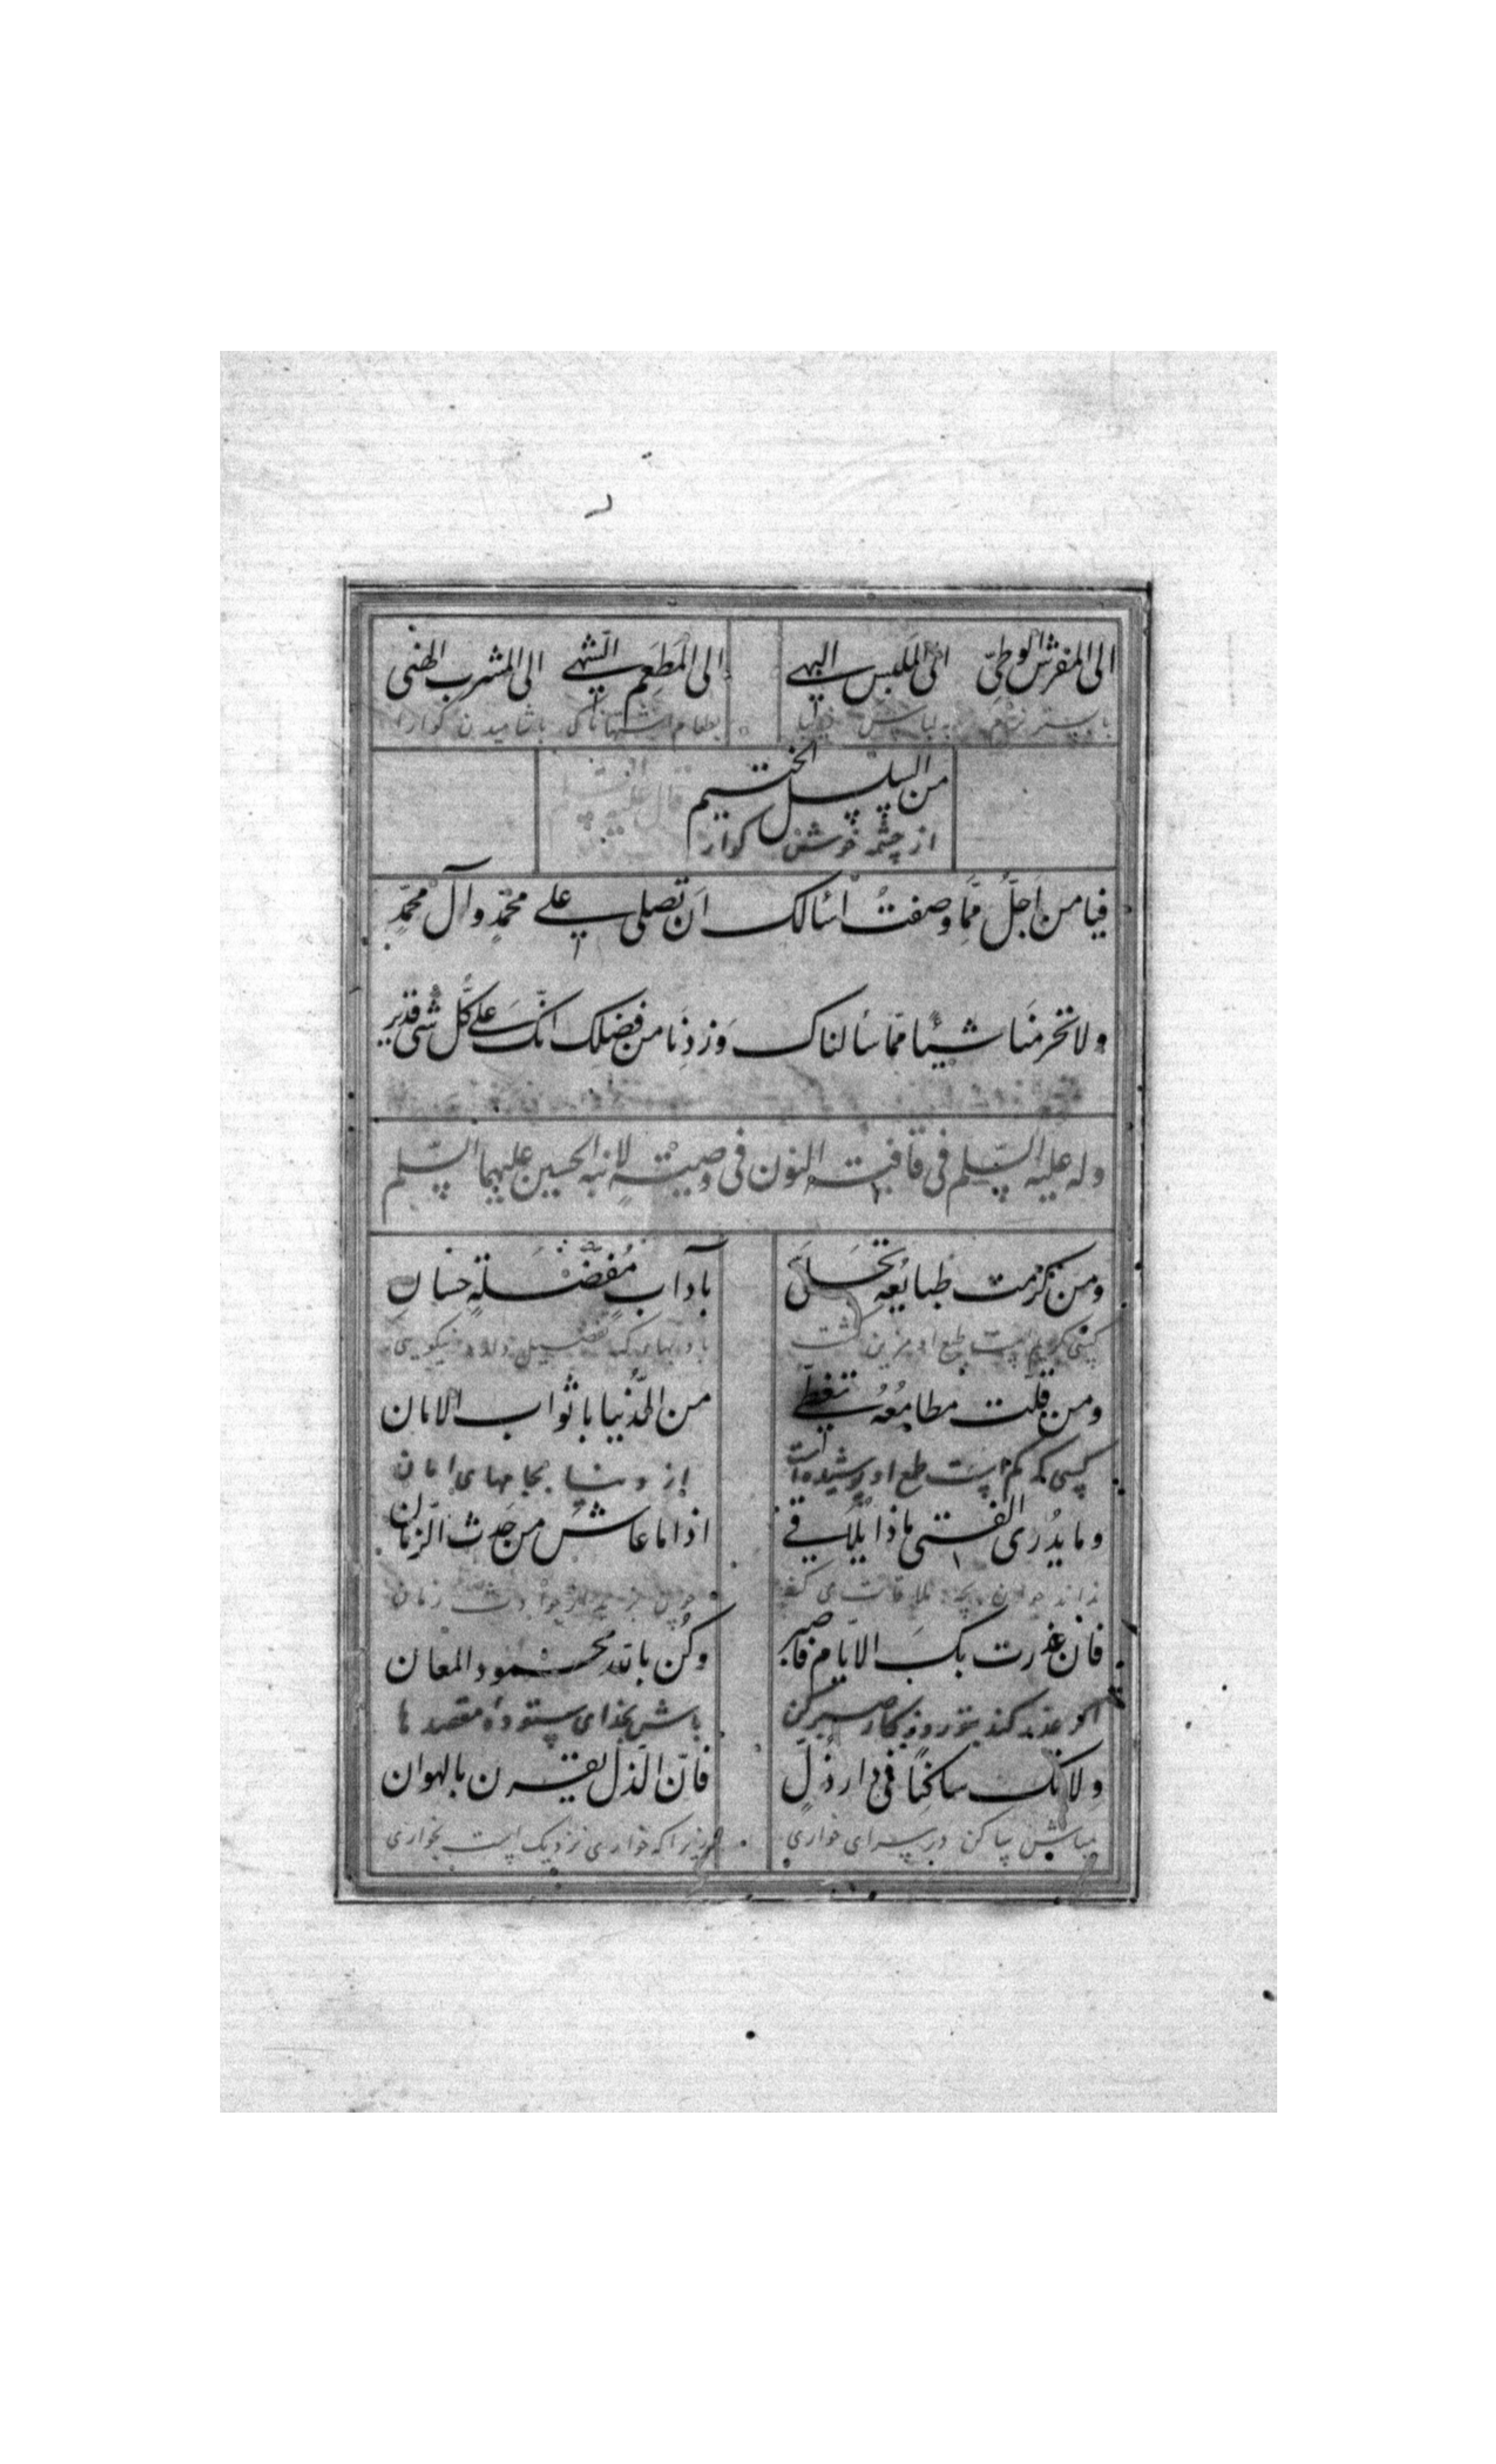 الی المفرش الوطیّ الی الملبس البهی الی المطعم الشهی الی المشرب الهنی
ببستر نرم به لباس زیبا بطعام اشتهاناک باشامیدن کوارا
من السلسل الختیم
از چشمه خوش کوار
فیا من اجلّ ممّا وصفتُ اسٔالک ان تصلی علی محمّدٍ وآل محمّدٍ
ولا تحرمنا شیئا ممّا سٔالناک وَزِدنا من فضلک انّک علی کلّ شیٔ قدیر
وله علیه السّلم فی قافیت النون فی وصیّتهٖ لابنه الحسین علیهما السّلم
ومن کرمت طبایُعه تحلّی بآدابٍ مُفضّلةٍ حسان
طبع او مزین کشت
ومن قلّت مطامعُهُ تغطّی من الدُّنیا باثواب الامان
کسی که کم است طمع او پوشیده است از دنیا بجامهای امان
وما یدُری الفتی ماذا یُلاقی اذا ما عاشَ من حَدث الزّمان
نداند جوان بچه ملاقات می کند زمان
فان غدرت بک الایّام فاصبر وکُن بالله محمود المعان
اکر غدر کند بتو روزکار صبر کن باش بخدای ستوده مقصدها
ولا تک ساکنًا فی دار ذُلٍّ فانّ الذّل یقرن بالهوان
مباش ساکن در سرای خواری زیرا که خواری نزدیک است بخواری